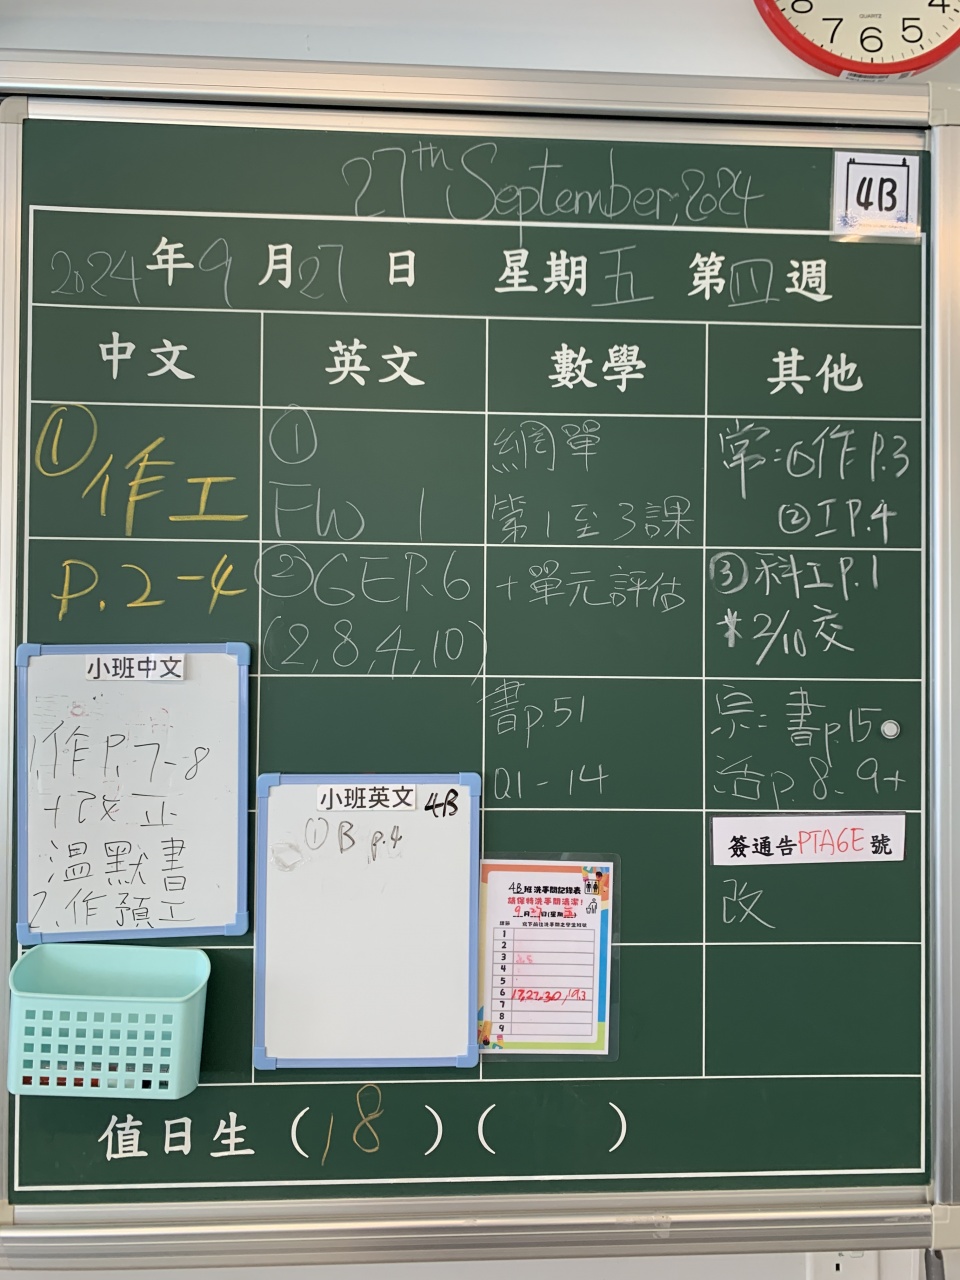 8 7 6 5 4
QUARTZ
27th September, 2024
4B
2024年9月27日 星期五 第四週
中文 英文 數學 其他
① 作工
P.2-4
①
FW 1
② GE P.6
(2,8,4,10)
網單
第1至3課
+單元評估
書p.51
Q1-14
常:①作P.3
②工P.4
③科工P.1
*2/10交
宗:書p.15
活p.8、9+
簽通告PTA6E號
改
小班中文
1.作P.7-8
+改正
溫默書
2.作預工
小班英文 4B
① B p.4
4B班洗手間記錄表
請保持洗手間清潔!
9月27日(星期五)
1
2
3
4
5
6 17,27,30,19,3
7
8
9
值日生(18)( )